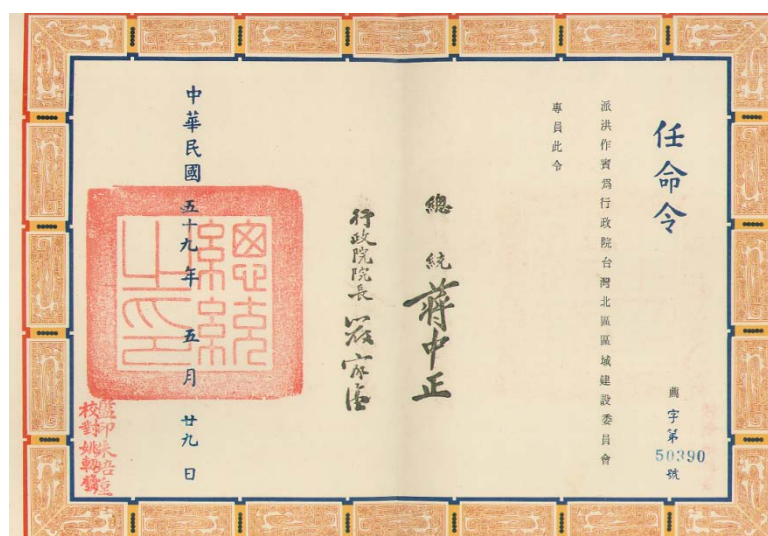 任命令
薦字第50390號
派洪作賓為行政院台灣北區區域建設委員會
專員此令
總統 蔣中正
行政院院長 嚴家淦
中華民國五十九年五月廿九日
總統之印
監印
校對姚